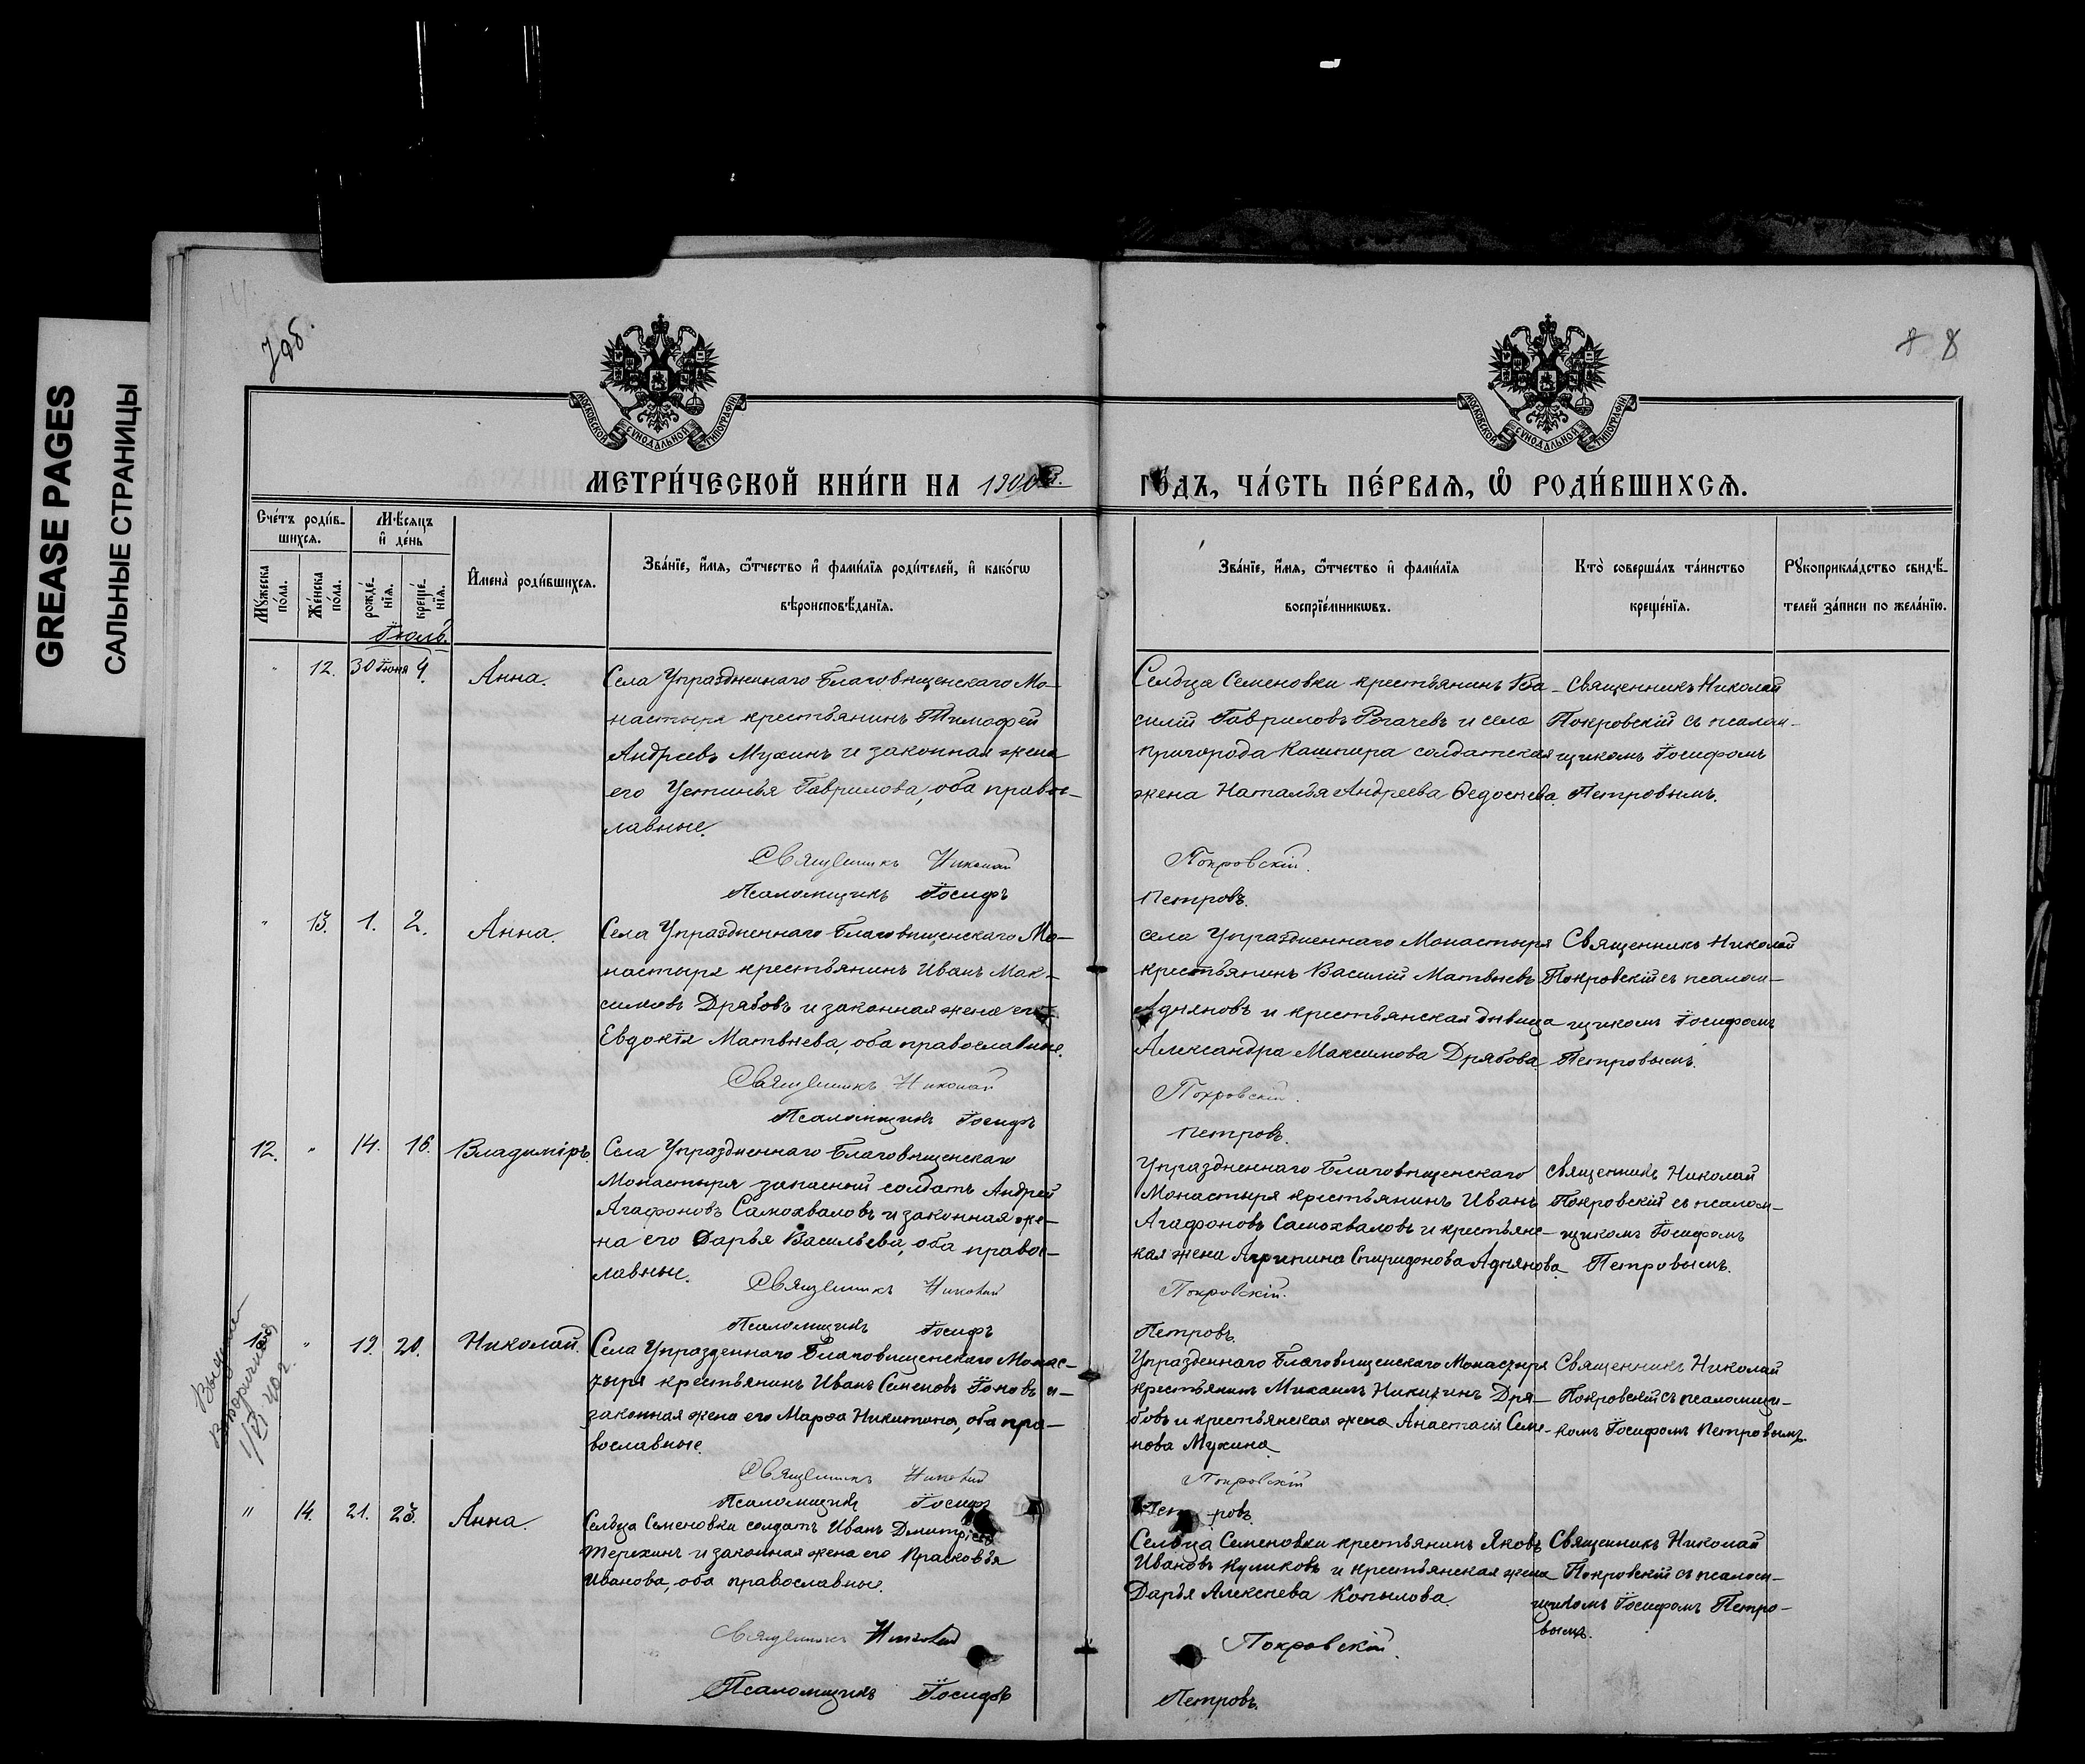 GREASE PAGES
САЛЬНЫЕ СТРАНИЦЫ
7об.
8 8
МОСКОВСКОЙ СѴНОДАЛЬНОЙ ТИПОГРАФІИ
МОСКОВСКОЙ СѴНОДАЛЬНОЙ ТИПОГРАФІИ
МЕТРИ́ЧЕСКОЙ КНИ́ГИ НА 1900й
ГО́ДЪ, ЧА́СТЬ ПЕ́РВАѦ, Ѡ҆ РОДИ́ВШИХСѦ.
Сче́тъ роди́в-
шихсѧ.
Мꙋ́жеска по́ла.
Же́нска по́ла.
Мѣ́сѧцъ
и҆ де́нь
рожде́-нїѧ.
креще́-нїѧ.
И҆мена̀ роди́вшихсѧ.
Зва́нїе, и҆́мѧ, ѻ҆́тчество и҆ фами́лїѧ роди́телей, и҆ како́гѡ
вѣроисповѣ́данїѧ.
Зва́нїе, и҆́мѧ, ѻ҆́тчество и҆ фами́лїѧ
воспрїе́мникѡвъ.
Кто̀ соверша́лъ та́инство
креще́нїѧ.
Рꙋкоприкла́дство свидѣ́-
телей за́писи по жела́нїю.
Іюль.
" 12. 30 Іюня 4. Анна.
Села Упраздненнаго Благовѣщенскаго Мо-
настыря крестьянинъ Тимофей
Андреевъ Мухинъ и законная жена
его Устинья Гаврилова, оба правос-
лавные.
Священникъ Николай
Псаломщикъ Іосифъ
Сельца Семеновки крестьянинъ Ва-
силій Гавриловъ Рогачевъ и села
пригорода Кашпира солдатская
жена Наталья Андреева Ѳедосѣева
Покровскій.
Петровъ.
Священникъ Николай
Покровскій съ псалом-
щикомъ Іосифомъ
Петровымъ.
" 13. 1. 2. Анна.
Села Упраздненнаго Благовѣщенскаго Мо-
настыря крестьянинъ Иванъ Мак-
симовъ Дрябовъ и законная жена его
Евдокія Матвѣева, оба православные.
Священникъ Николай
Псаломщикъ Іосифъ
села Упраздненнаго Монастыря
крестьянинъ Василій Матвѣевъ
Адняновъ и крестьянская дѣвица
Александра Максимова Дрябова
Покровскій.
Петровъ.
Священникъ Николай
Покровскій съ псалом-
щикомъ Іосифомъ
Петровымъ.
12. " 14. 16. Владиміръ.
Села Упраздненнаго Благовѣщенскаго
Монастыря запасной солдатъ Андрей
Агафоновъ Самохваловъ и законная же-
на его Дарья Васильева, оба правос-
лавные.
Священникъ Николай
Псаломщикъ Іосифъ
Упраздненнаго Благовѣщенскаго
Монастыря крестьянинъ Иванъ
Агафоновъ Самохваловъ и крестьянс-
кая жена Агрипина Спиридонова Аднянова
Покровскій.
Петровъ.
Священникъ Николай
Покровскій съ псалом-
щикомъ Іосифомъ
Петровымъ.
13. " 19. 20. Николай.
Села Упразденнаго Благовѣщенскаго Монас-
тыря крестьянинъ Иванъ Семеновъ Іоновъ и
законная жена его Марѳа Никитина, оба пра-
вославные.
Священникъ Николай
Псаломщикъ Іосифъ
Упразденнаго Благовѣщенскаго Монастыря
крестьянинъ Михаилъ Никитинъ Дря-
бовъ и крестьянская жена Анастасія Семе-
нова Мухина
Покровскій
Петровъ.
Священникъ Николай
Покровскій съ псаломщи-
комъ Іосифомъ Петровымъ.
" 14. 21. 23. Анна.
Сельца Семеновки солдатъ Иванъ Дмитріевъ
Терехинъ и законная жена его Прасковья
Иванова, оба православные.
Священникъ Николай
Псаломщикъ Іосифъ
Сельца Семеновки крестьянинъ Яковъ
Ивановъ Куликовъ и крестьянская жена
Дарья Алексѣева Копылова.
Покровскій.
Петровъ.
Священникъ Николай
Покровскій съ псалом-
щикомъ Іосифомъ Петро-
вымъ.